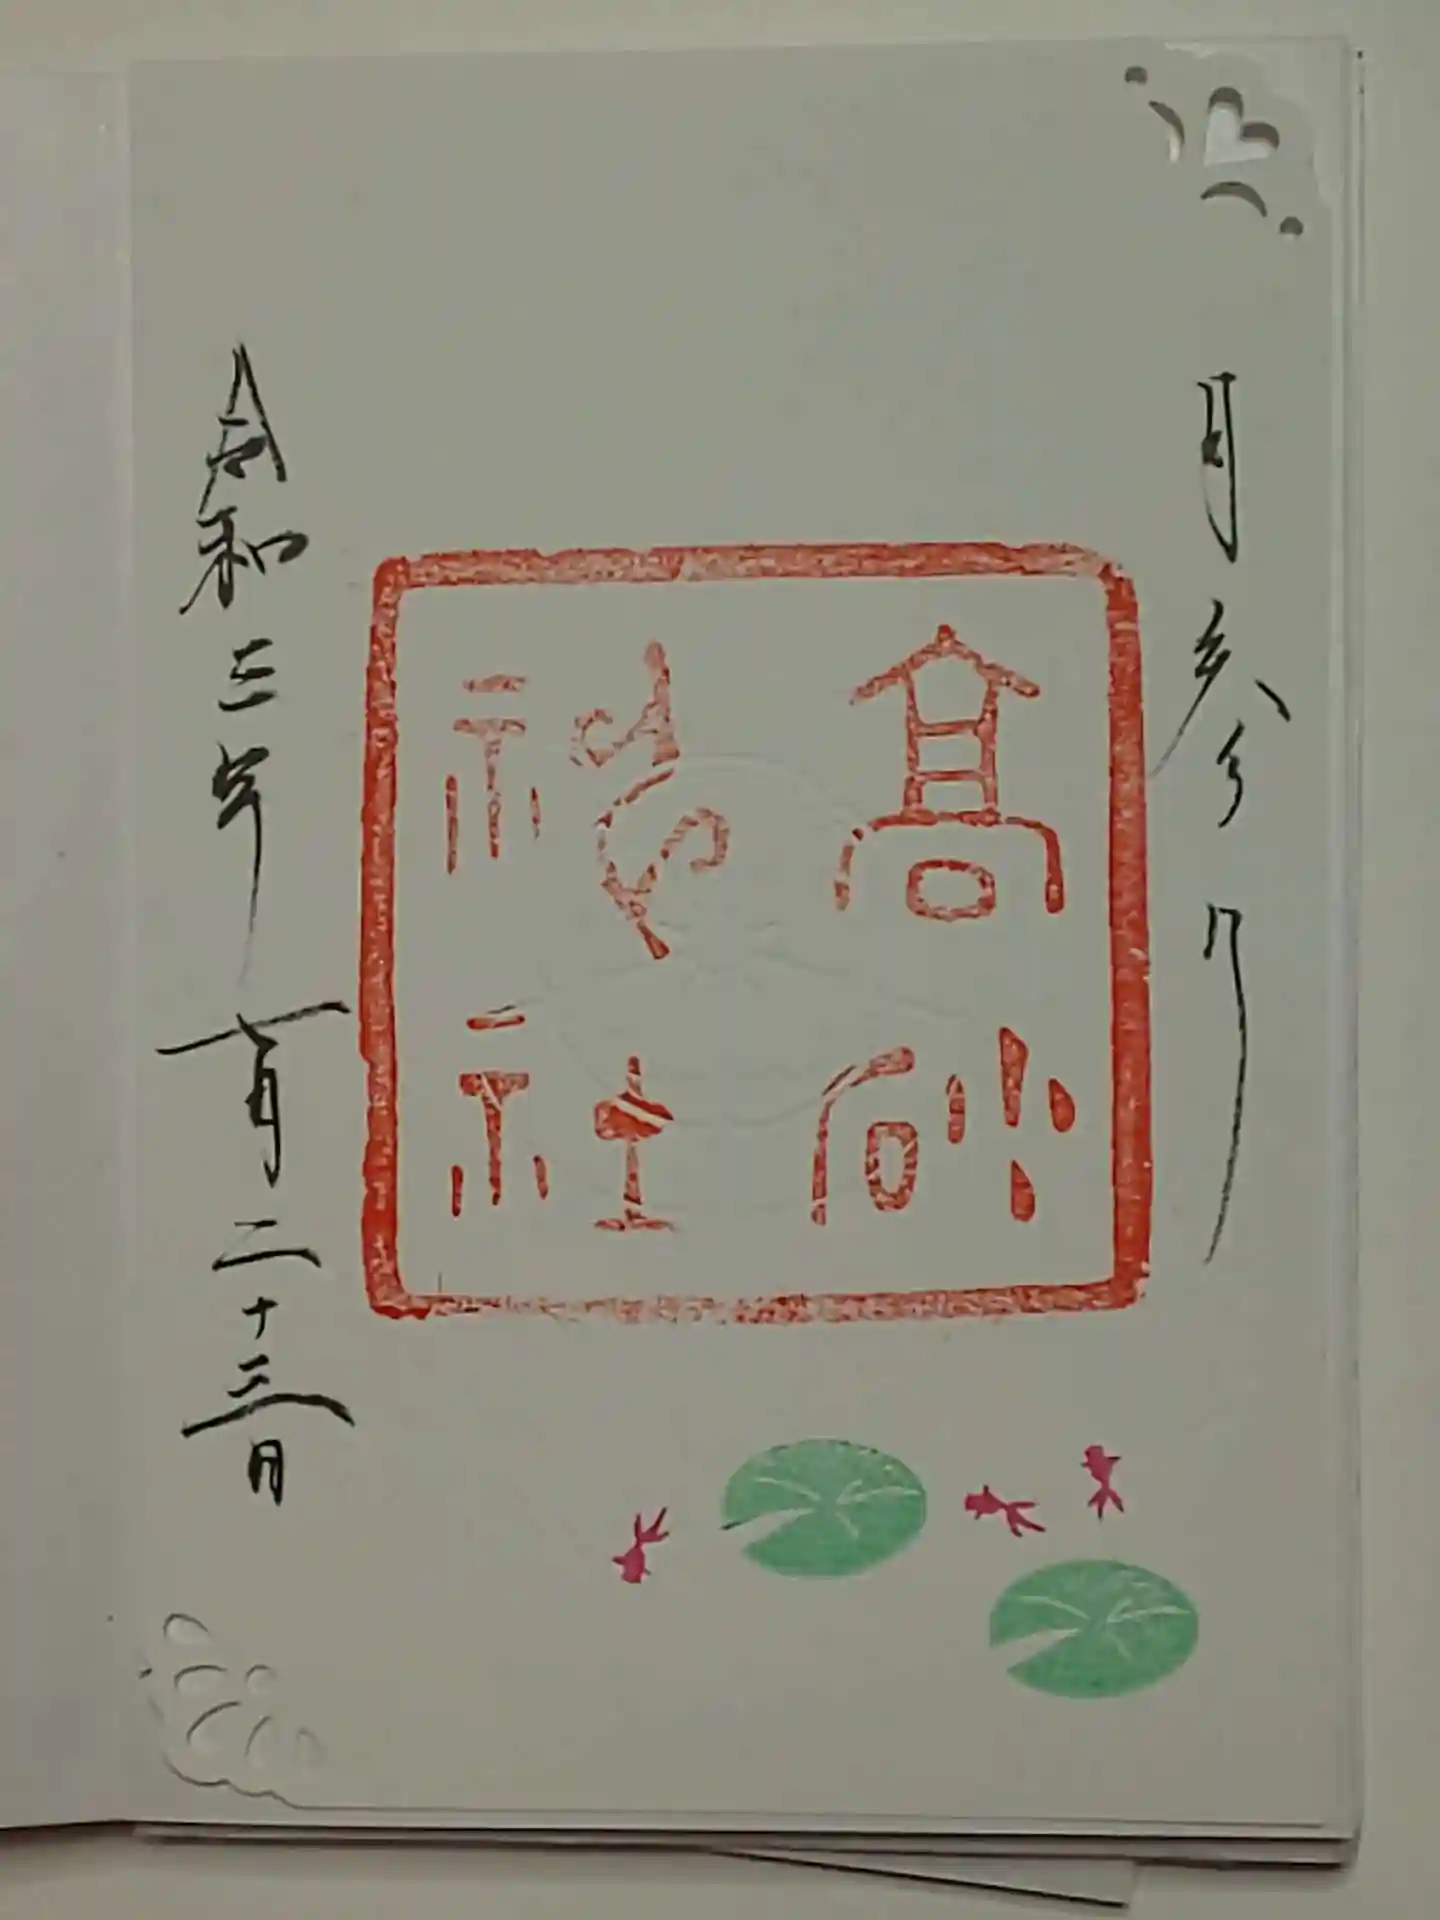 月参り
髙砂
神社
令和三年七月二十三日